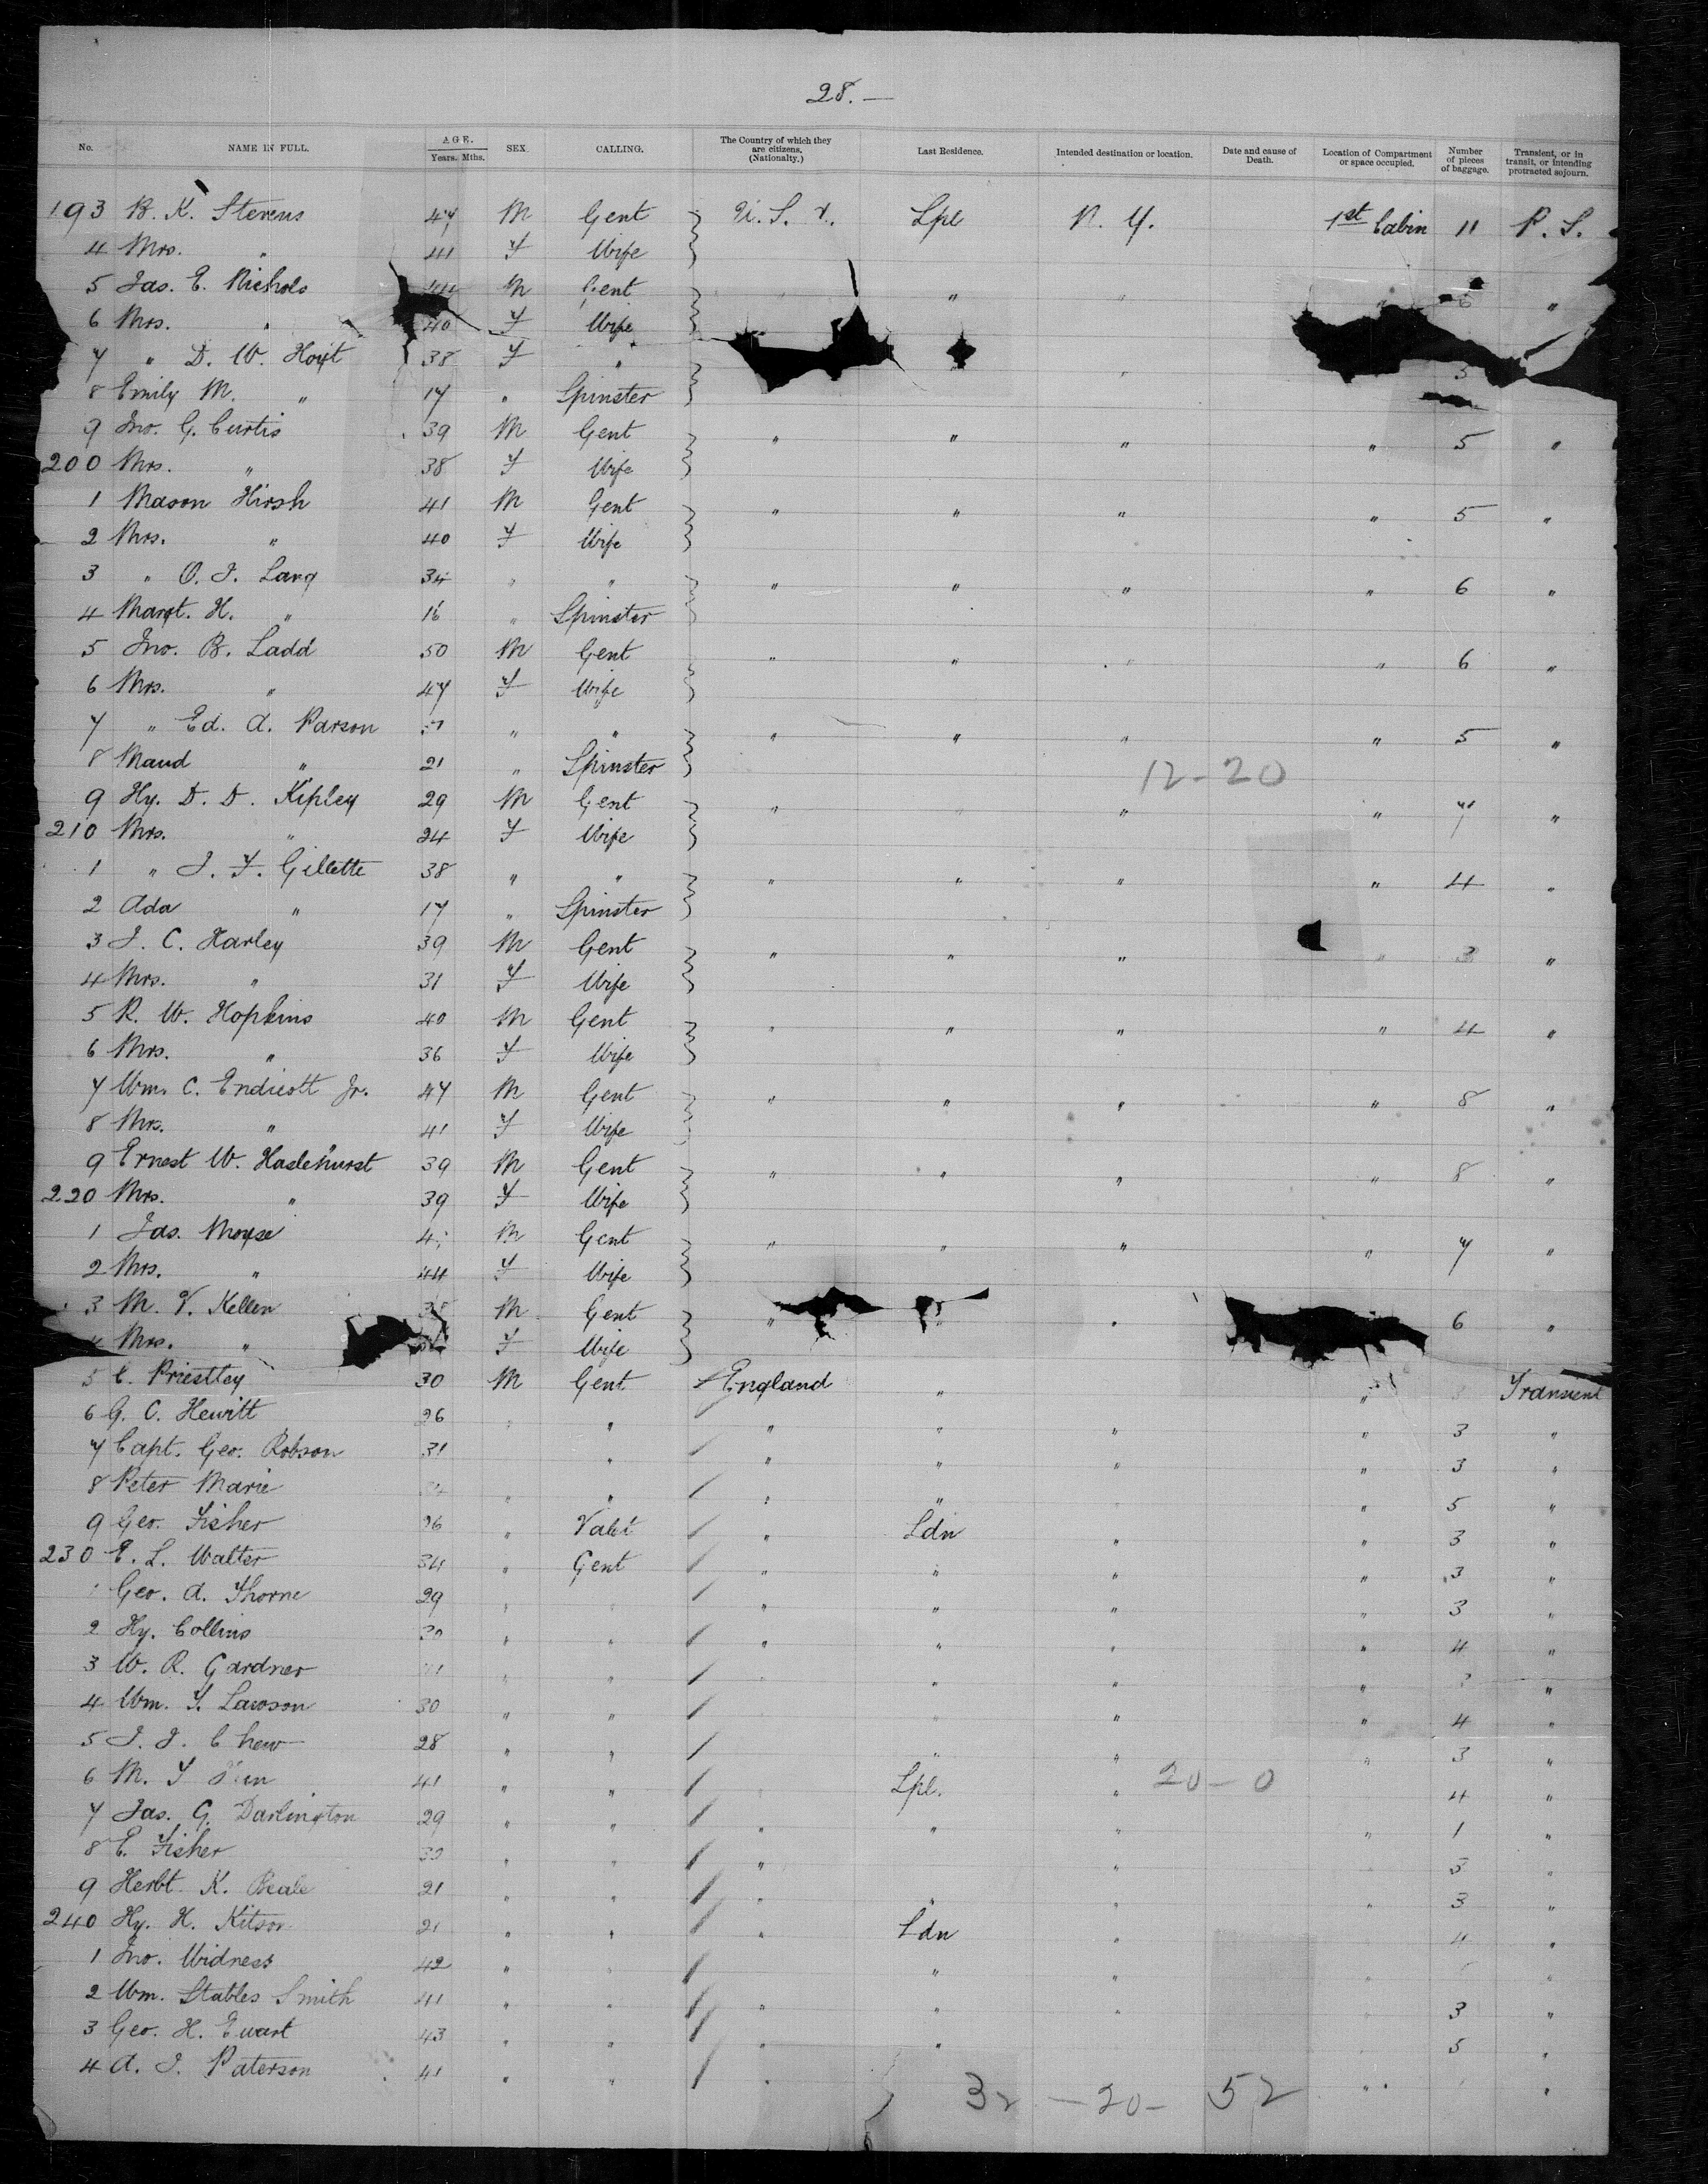 28. —
No. NAME IN FULL. AGE. Years. Mths. SEX. CALLING. The Country of which they are citizens. (Nationalty.) Last Residence. Intended destination or location. Date and cause of Death. Location of Compartment or space occupied. Number of pieces of baggage. Transient, or in transit, or intending protracted sojourn.
193 B. K. Stevens 47 M Gent U. S. A. Lpl N. Y. 1st Cabin 11 P. S.
4 Mrs. " 41 F Wife
5 Jas. E. Nichols M Gent " " "
6 Mrs. " 40 F Wife
7 " D. W. Hoyt 38 F " " 3
8 Emily M. " 17 " Spinster
9 Jno. G. Curtis 39 M Gent " " " " 5 "
200 Mrs. " 38 F Wife
1 Mason Hirsh 41 M Gent " " " " 5 "
2 Mrs. " 40 F Wife
3 " O. J. Lang 34 " " " " " " 6 "
4 Margt. H. " 16 " Spinster
5 Jno. B. Ladd 50 M Gent " " " " 6 "
6 Mrs. " 47 F Wife
7 " Ed. A. Parson " " " " " " 5 "
8 Maud " 21 " Spinster
12-20
9 Hy. D. D. Kipley 29 M Gent " " " " 7 "
210 Mrs. " 24 F Wife
1 " J. F. Gillette 38 " " " " " " 4 "
2 Ada " 17 " Spinster
3 J. C. Harley 39 M Gent " " " " 3 "
4 Mrs. " 31 F Wife
5 R. W. Hopkins 40 M Gent " " " " 4 "
6 Mrs. " 36 F Wife
7 Wm. C. Endicott Jr. 47 M Gent " " " " 8 "
8 Mrs. " 41 F Wife
9 Ernest W. Haslehurst 39 M Gent " " " " 8 "
220 Mrs. " 39 F Wife
1 Jas. Moyse M Gent " " " " 7 "
2 Mrs. " 44 F Wife
3 M. V. Kellen M Gent " " " 6 "
4 Mrs. " F Wife
5 C. Priestley 30 M Gent England " " Transient
6 G. C. Hewitt 26 " " " " " " 3 "
7 Capt. Geo. Robson 31 " " " " " 3 "
8 Peter Marie " " " " " 5 "
9 Geo. Fisher 36 " Valet " Ldn " " 3 "
230 E. L. Walter 34 " Gent " " " " 3 "
1 Geo. A. Thorne 29 " " " " " " 3 "
2 Hy. Collins 30 " " " " " " 4 "
3 W. R. Gardner " " " " " "
4 Wm. T. Lawson 30 " " " " 4 "
5 J. J. Chew 28 " " " " " 3 "
6 M. T 41 " " " Lpl. " 4 "
20-0
7 Jas. G. Darlington 29 " " " " " " 1 "
8 E. Fisher " " " " "
9 Herbt. K. Beale 21 " " " " " " 3 "
240 Hy. H. Kitson 21 " " " Ldn " 4 "
1 Jno. Widness 42 " " " " "
2 Wm. Stables Smith 41 " " " " " 3 "
3 Geo. H. Ewart 43 " " " " 5 "
4 A. J. Paterson 41 " " " " "
32 -20- 52